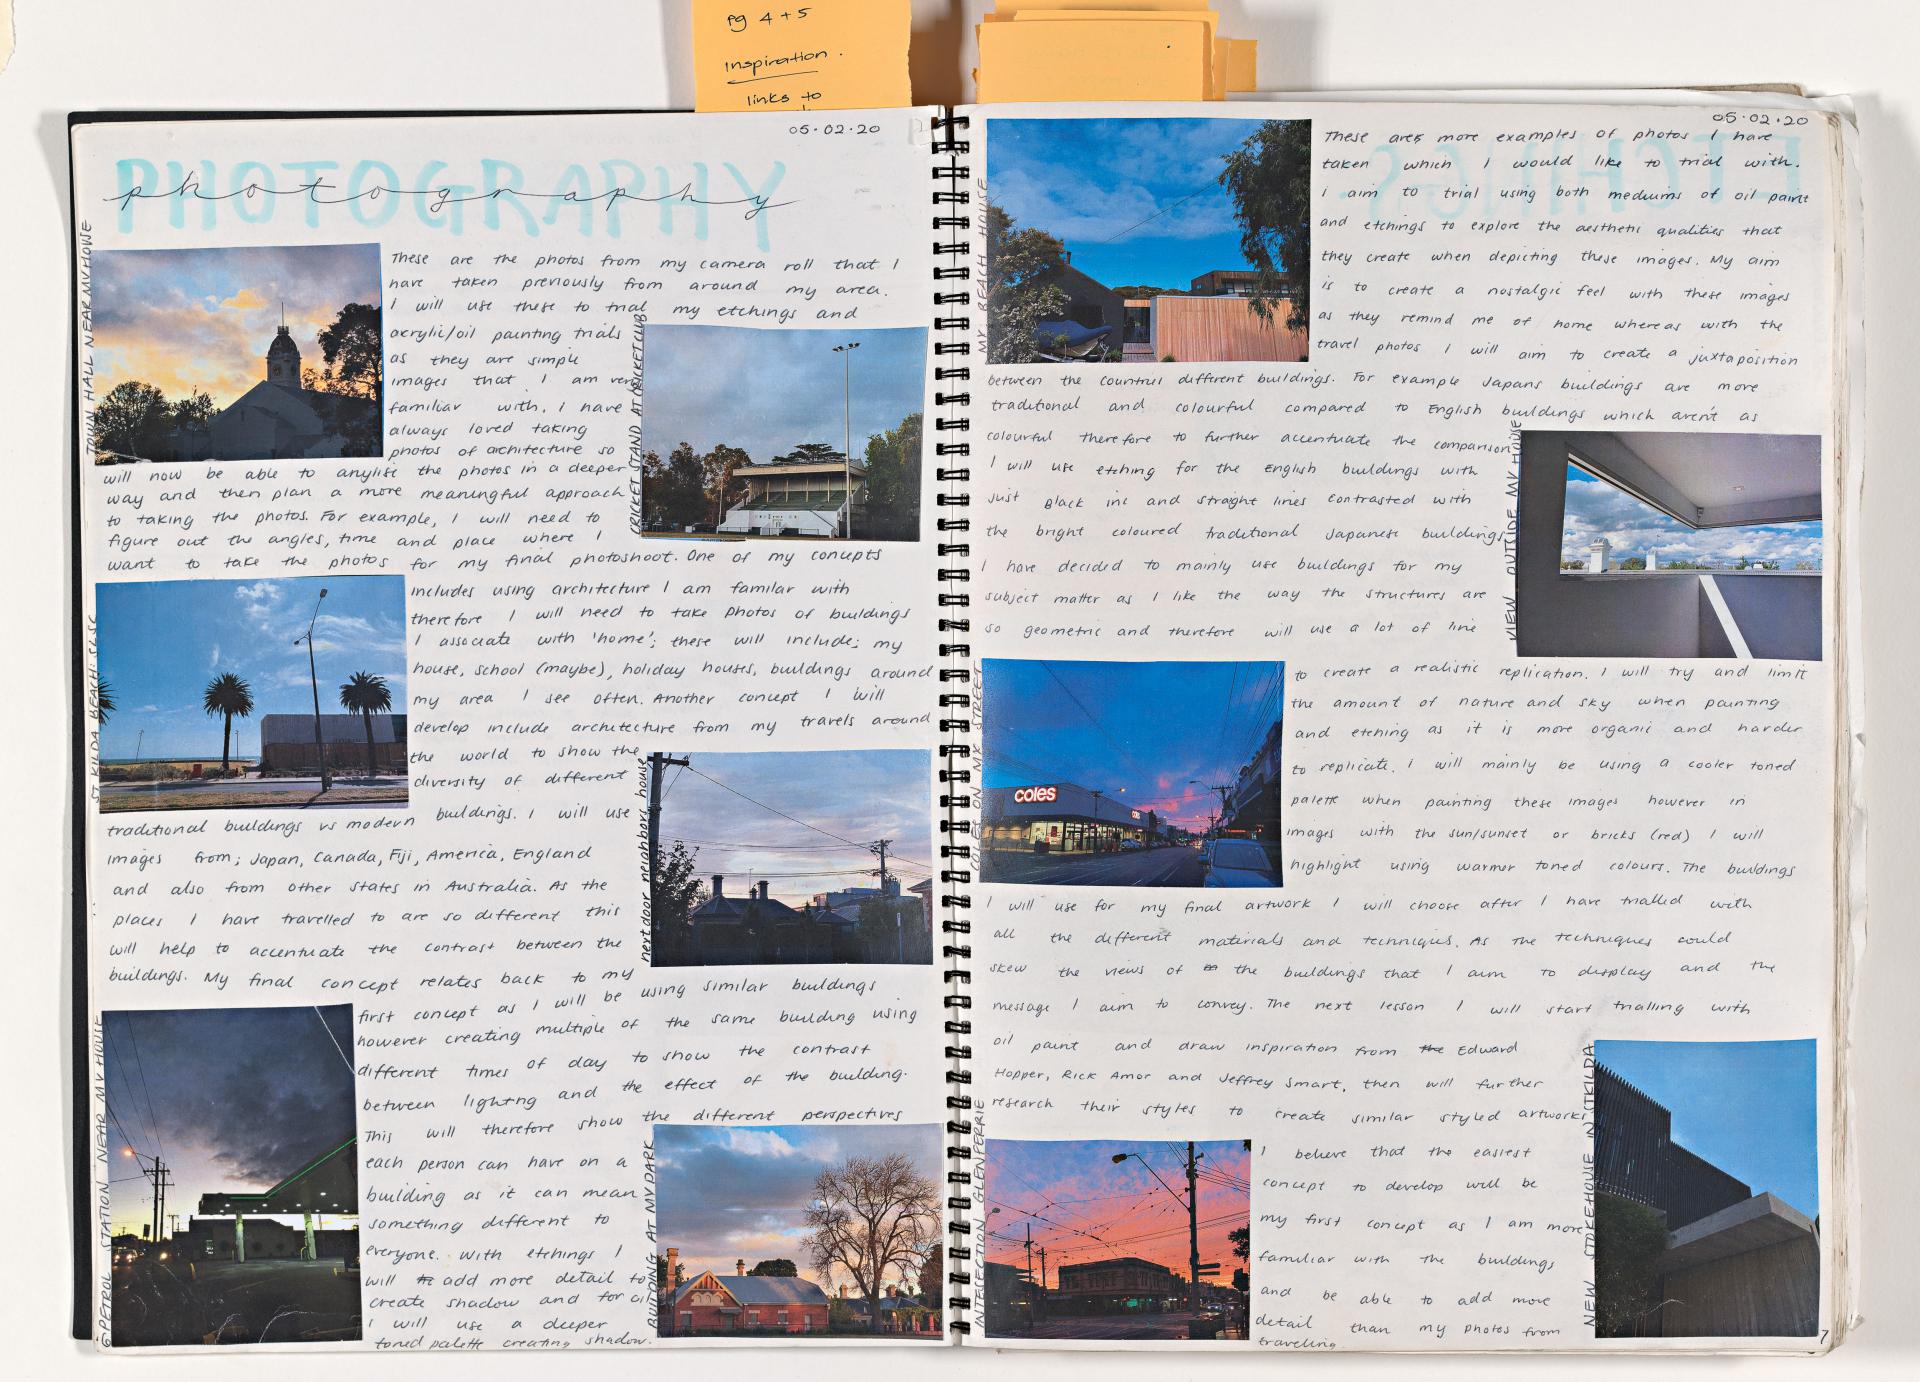 pg 4 + 5
inspiration.
links to
05·02·20
PHOTOGRAPHY
photography
TOWN HALL NEAR MY HOUSE
These are the photos from my camera roll that I
have taken previously from around my area.
I will use these to trial my etchings and
acrylic/oil painting trials
as they are simple
images that I am very
familiar with. I have
always loved taking
photos of architecture so
will now be able to anylise the photos in a deeper
way and then plan a more meaningful approach
to taking the photos. For example, I will need to
figure out the angles, time and place where I
want to take the photos for my final photoshoot. One of my concepts
CRICKET STAND AT CRICKET CLUB
ST KILDA BEACH: SLSC
includes using architecture I am familar with
therefore I will need to take photos of buildings
I associate with 'home'; these will include; my
house, school (maybe), holiday houses, buildings around
my area I see often. Another concept I will
develop include architecture from my travels around
the world to show the
diversity of different
traditional buildings vs modern buildings. I will use
images from; Japan, Canada, Fiji, America, England
and also from other states in Australia. As the
places I have travelled to are so different this
will help to accentuate the contrast between the
buildings. My final concept relates back to my
next door neighbors house
first concept as I will be using similar buildings
however creating multiple of the same building using
different times of day to show the contrast
between lighting and the effect of the building.
This will therefore show the different perspectives
each person can have on a
building as it can mean
something different to
everyone. With etchings I
will add more detail to
create shadow and for oil
I will use a deeper
toned palette creating shadow.
6
PETROL STATION NEAR MY HOUSE
BUILDING AT MY PARK
05·02·20
MY BEACH HOUSE
These are more examples of photos I have
taken which I would like to trial with.
I aim to trial using both mediums of oil paint
and etchings to explore the aesthetic qualities that
they create when depicting these images. My aim
is to create a nostalgic feel with these images
as they remind me of home whereas with the
travel photos I will aim to create a juxtaposition
between the countries different buildings. For example Japans buildings are more
traditional and colourful compared to English buildings which aren't as
colourful therefore to further accentuate the comparison
I will use etching for the English buildings with
just Black inc and straight lines contrasted with
the bright coloured traditional Japanese buildings
I have decided to mainly use buildings for my
subject matter as I like the way the structures are
so geometric and therefore will use a lot of line
VIEW OUTSIDE MY HOUSE
COLES ON MK STREET
coles
to create a realistic replication. I will try and limit
the amount of nature and sky when painting
and etching as it is more organic and harder
to replicate. I will mainly be using a cooler toned
palette when painting these images however in
images with the sun/sunset or bricks (red) I will
highlight using warmer toned colours. The buildings
I will use for my final artwork I will choose after I have trialled with
all the different materials and techniques. As the techniques could
skew the views of the buildings that I aim to display and the
message I aim to convey. The next lesson I will start trialling with
oil paint and draw inspiration from the Edward
Hopper, Rick Amor and Jeffrey Smart, then will further
research their styles to create similar styled artworks
INTESECTION GLENFERRIE
I believe that the easiest
concept to develop will be
my first concept as I am more
familiar with the buildings
and be able to add more
detail than my photos from
traveling.
NEW STOKEHOUSE IN STKILDA
7